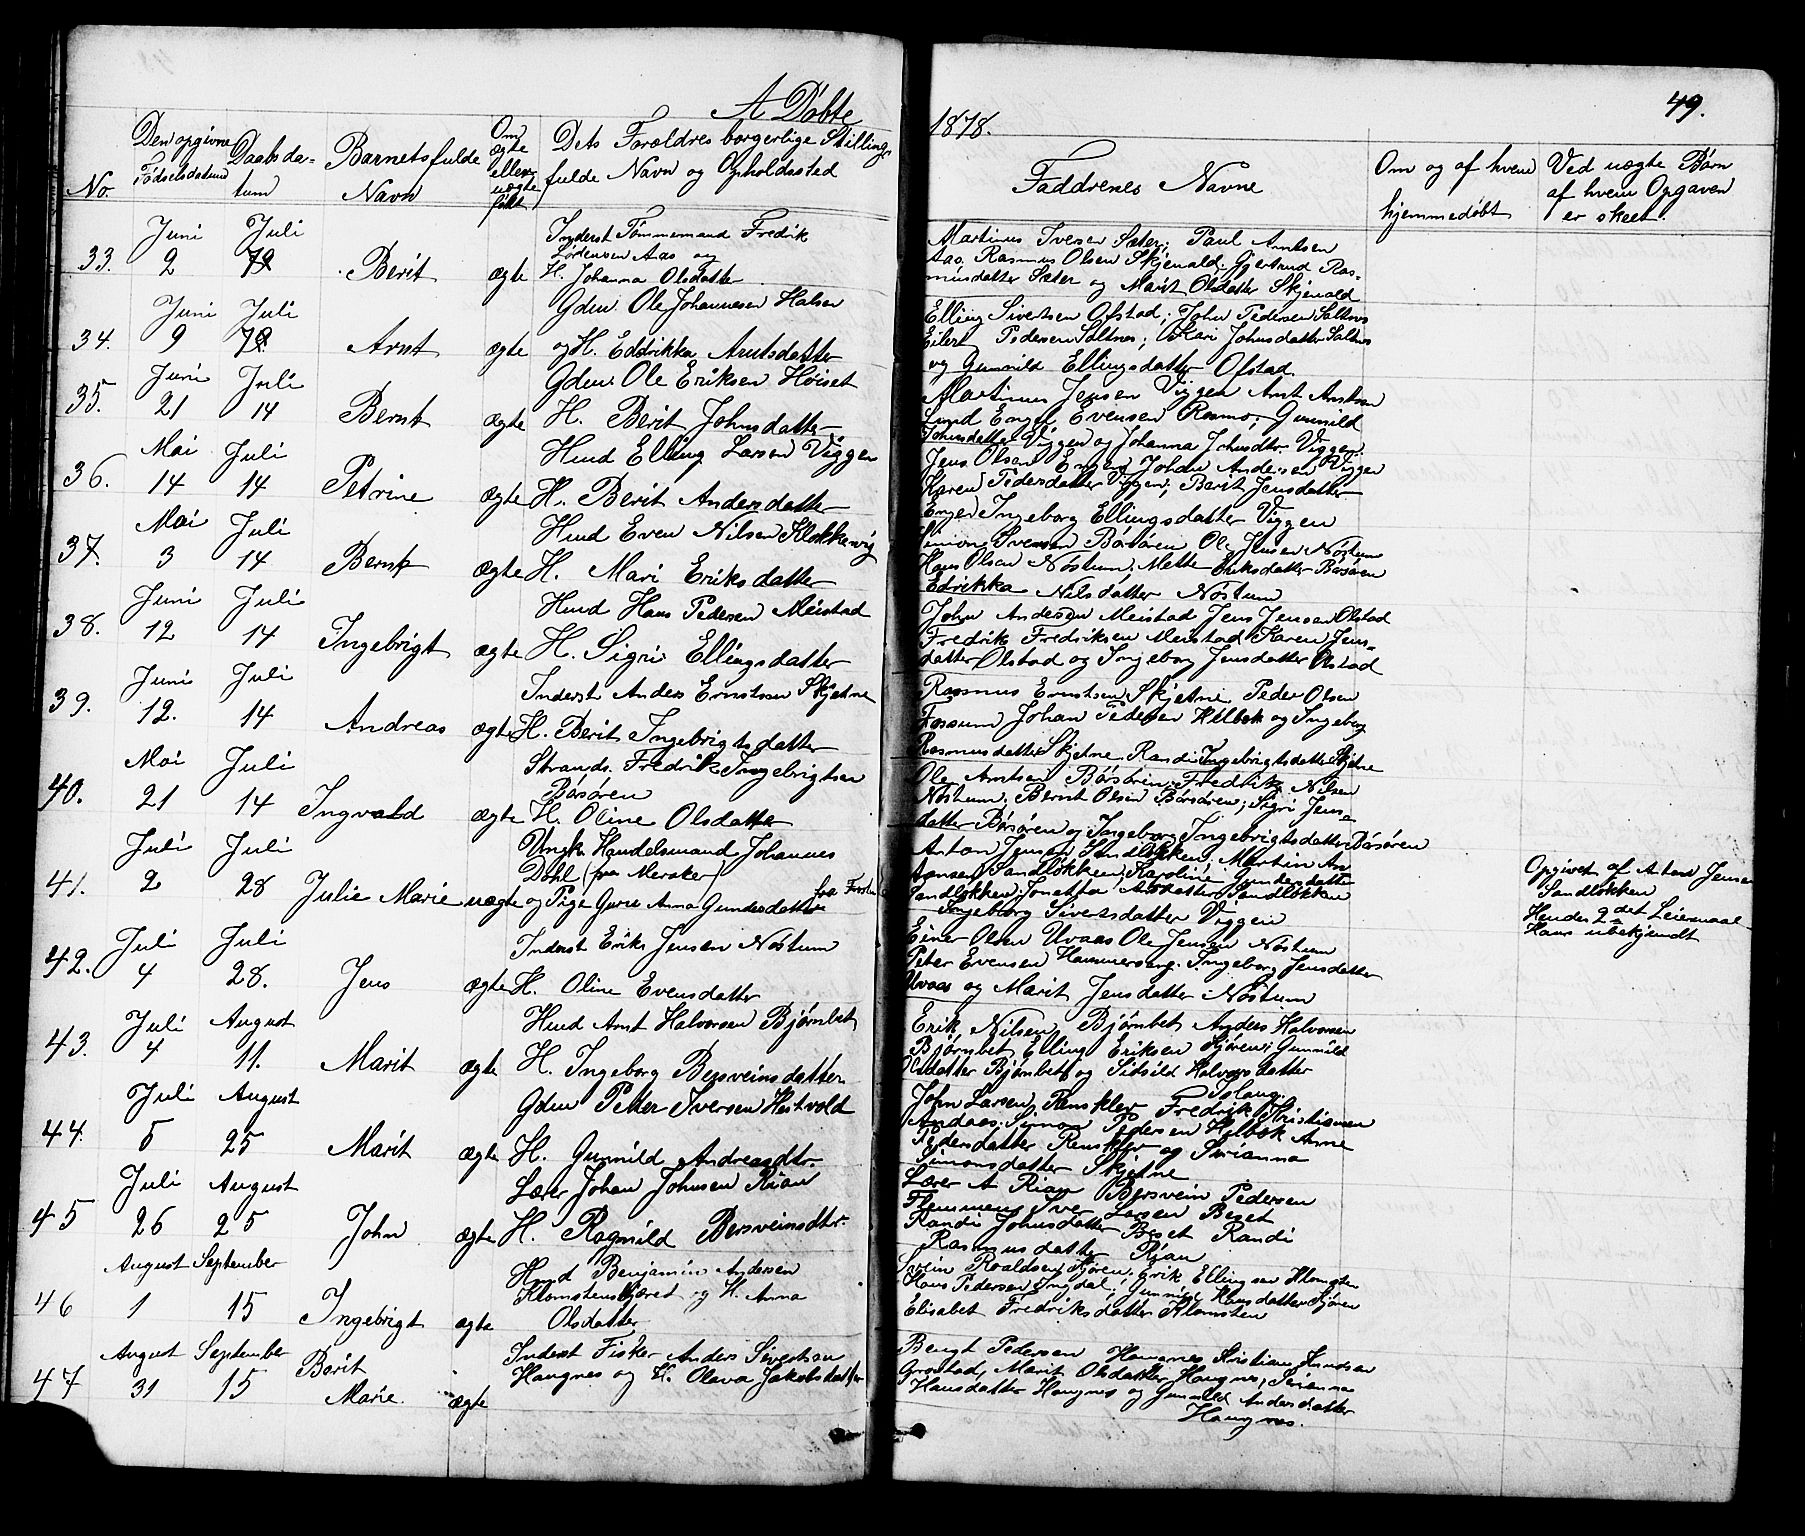 A Døbte
1878.
49.
No.
Den opgivne Fødselsdatum
Daabsdatum
Barnets fulde Navn
Om ægte eller uægte født
Dets Forældres borgerlige Stilling, fulde Navn og Opholdssted
Faddrenes Navne
Om og af hvem hjemmedøbt
Ved uægte Børn af hvem Opgaven er skeet.
33. Juni 2 Juli Berit ægte
Inderst Tømmermand Fredrik
Sørensen Aas og
H. Johanna Olsdatter
Martinus Iversen Sæter; Paul Arntsen
Aas. Rasmus Olsen Skjenald. Gjertrud Ras-
musdatter Sæter og Marit Olsdatter Skjenald
34. Juni 9 Juli Arnt ægte
Gdm. Ole Johannesen Halsen
og H. Eddrikka Arntsdatter
Elling Sivertsen Ofstad; John Pedersen Saltnes
Eilert Pedersen Saltnes; Kari Johnsdatter Saltnes
og Gunnild Ellingsdatter Ofstad.
35. Juni 21 Juli 14 Bernt ægte
Gdm. Ole Eriksen Høiset
H. Berit Johnsdatter
Martinus Jensen Viggen Arnt Arntsen
Lund Engel Evensen Rosmo; Gunnild
Johnsdatter Viggen og Johanna Johnsdtr. Viggen.
36. Mai 14 Juli 14 Petrine ægte
Husd Elling Larsen Viggen
H. Berit Andersdatter
Jens Olsen Engen Johan Andersen Viggen
Karen Pedersdatter Viggen; Berit Jensdatter
Engen Ingeborg Ellingsdatter Viggen
37. Mai 3 Juli 14 Bernt ægte
Husd Even Nilsen Klokkervig
H. Mari Eriksdatter
Simon Svensen Børsøren Ole Jensen Nøstum
Hans Olsen Nøstum; Mette Eriksdatter Børsøren
Edrikka Nilsdatter Nøstum
38. Juni 12 Juli 14 Ingebrigt ægte
Husd Hans Pedersen Meistad
H. Sigri Ellingsdatter
John Andersen Meistad Jens Jensen Olstad
Fredrik Fredriksen Meistad Karen Jens-
datter Olstad og Ingeborg Jensdatter Olstad
39. Juni 12. Juli 14 Andreas ægte
Inderst Anders Erntsen Skjetne
H. Berit Ingebrigtsdatter
Rasmus Erntsen Skjetne Peder Olsen
Fossum Johan Pedersen Hølbek og Ingeborg
Rasmusdatter Skjetne Randi Ingebrigtsdatter Skjetne
40. Mai 21 Juli 14 Ingvald ægte
Strands. Fredrik Ingebrigtsen
Børsøren
H. Oline Olsdatter
Ole Arntsen Børsøren; Fredrik Nilsen
Nøstum; Bernt Olsen Børsøren; Sigri Jens-
datter Børsøren og Ingeborg Ingebrigtsdatter Børsøren
41. Juli 2 Juli 28 Julie Marie uægte
Ungk. Handelsmand Johannes
Dahl (fra Meraker)
og Pige Gurie Anna Gundersdatter fra
Anton Jensen Sandløkken; Martin
Sandløkken; Karoline Gundersdatter
Sandløkken; Sandløkken
Ingeborg Sivertsdatter Viggen
Opgivet af Anton Jensen
Sandløkken
Hendes 2det Leiermaal
Hans ubekjendt
42. Juli 4 Juli 28. Jens ægte
Inderst Erik Jensen Nøstum
H. Oline Evensdatter
Einer Olsen Uvaas Ole Jensen Nøstum
Peter Evensen Hammersæng. Ingeborg Jensdatter
Uvaas og Marit Jensdatter Nøstum
43. Juli 4 August 11. Marit ægte
Husd Arnt Halvorsen Bjørnbet
H. Ingeborg Bersveinsdatter
Erik Nilsen Bjørnbet Anders Halvorsen
Bjørnbet Elling Eriksen Sjøren; Gunnild
Olsdatter Bjørnbet og Sidsild Halvorsdatter
44. Juli 5 August 25 Marit ægte
Gdm Peter Iversen Hestvold
H. Gunnild Andreasdtr.
John Larsen Rensklev Fredrik Kristiansen
Andaas. Simon Pedersen Hølbek Anne
Pedersdatter Rensklev og Serianna
Simonsdatter Skjetne
45 Juli 26 August 25 John ægte
Lærer Johan Johnsen Rian
H. Ragnild Bersveinsdtr.
Lærer A Rian Bersvein Pedersen
Flemmen Iver Larsen Beset
Randi Johnsdatter Beset Randi
Rasmusdatter Rian
46 August 1 September 15 Ingebrigt ægte
Husd Benjamin Andersen
Klomstenskjæret og H. Anna
Olsdatter
Svein Roaldsen Sjøren, Erik Ellingsen Klomsten
Hans Pedersen Ingdal; Gunnild Hansdatter Sjøren
Elisabet Fredriksdatter Klomsten
47 August 31 September 15 Berit Marie. ægte
Inderst Fisker Anders Sivertsen
Haugnes og H. Olava Jakobsdatter
Bengt Pedersen Haugnes Kristian Knudsen
Grøstad, Marit Olsdatter Haugnes, Serianna
Hansdatter Haugnes og Gunnild Andersdatter
Haugnes.